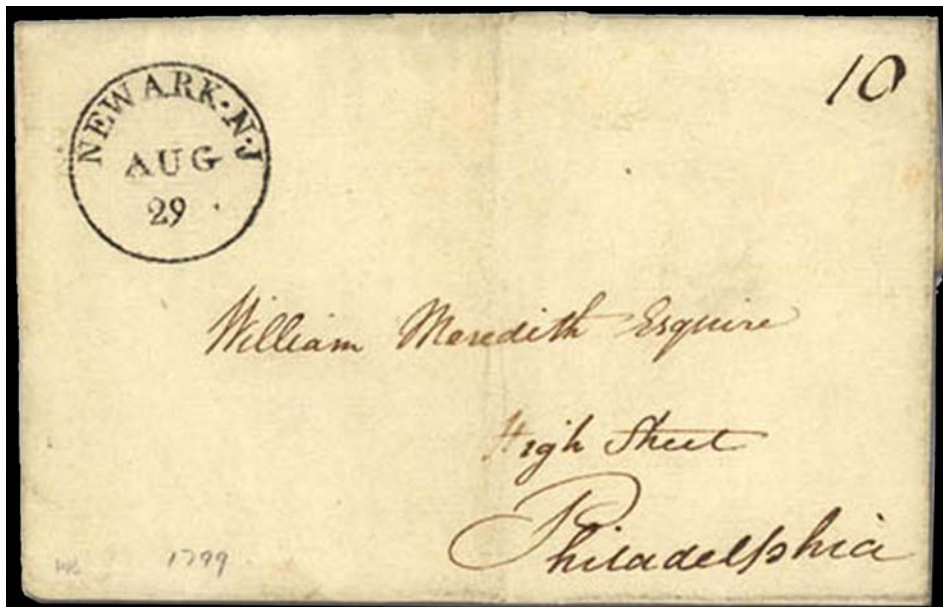 NEWARK·N·J
AUG
29
10
William Meredith Esquire
High Street
Philadelphia
1799